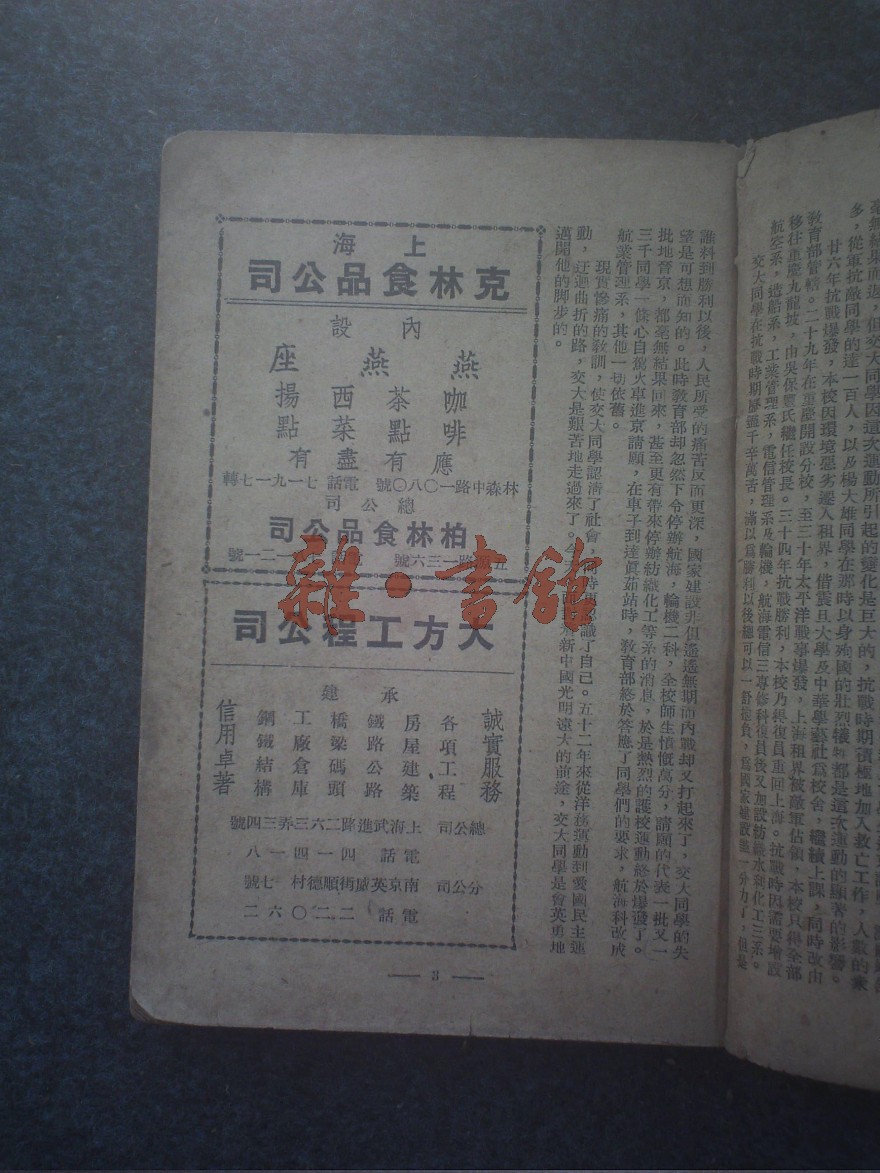 毫無結果而返，但交大同學因這次運動所引起的變化是巨大的，抗戰時期積極地加入救亡工作，人數的衆
多，從軍抗敵同學的達一百人，以及楊大雄同學在那時以身殉國的壯烈犧牲都是這次運動的顯著的影響。
廿六年抗戰爆發，本校因環境惡劣遷入租界，借震旦大學及中華學藝社爲校舍，繼續上課，同時改由
教育部管轄。二十九年在重慶開設分校，至三十年太平洋戰事爆發，上海租界被敵軍佔領，本校只得全部
移往重慶九龍坡，由吳保豐氏繼任校長。三十四年抗戰勝利，本校乃經復員重回上海。抗戰時因需要增設
航空系，造船系，工業管理系，電信管理系及輪機，航海電信三專修科復員後又加設紡織水利化工三系。
交大同學在抗戰時期歷盡千辛萬苦，滿以爲勝利以後總可以一舒抱負，爲國家建設盡一分力了，但是
誰料到勝利以後，人民所受的痛苦反而更深，國家建設非但遙遙無期而內戰却又打起來了，交大同學的失
望是可想而知的。此時教育部却忽然下令停辦航海，輪機二科，全校師生憤慨萬分，請願的代表一批又一
批地晉京，都毫無結果回來，甚至更有帶來停辦紡織化工等系的消息，於是熱烈的護校運動終於爆發了。
三千同學一條心自駕火車進京請願，在車子到達眞茹站時，教育部終於答應了同學們的要求，航海科改成
航業管理系，其他一切依舊。
現實慘痛的教訓，使交大同學認清了社會，時更認識了自己。五十二年來從洋務運動到愛國民主運
動，迂迴曲折的路，交大是艱苦地走過來了。今新中國光明遠大的前途，交大同學是會英勇地
邁開他的脚步的。
上海
克林食品公司
內設
燕燕座
咖啡 茶點 西菜 揚點
應有盡有
林森中路一〇八〇號 電話 七一九一七轉
總公司
柏林食品公司
路一三六號 一二一號
大方工程公司
誠實服務
承建
各項工程
房屋建築
鐵路公路
橋梁碼頭
工廠倉庫
鋼鐵結構
信用卓著
總公司 上海武進路二六三弄三四號
電話 四一四一八
分公司 南京英威街順德村七號
電話 二二〇六二
— 3 —
雜·書館